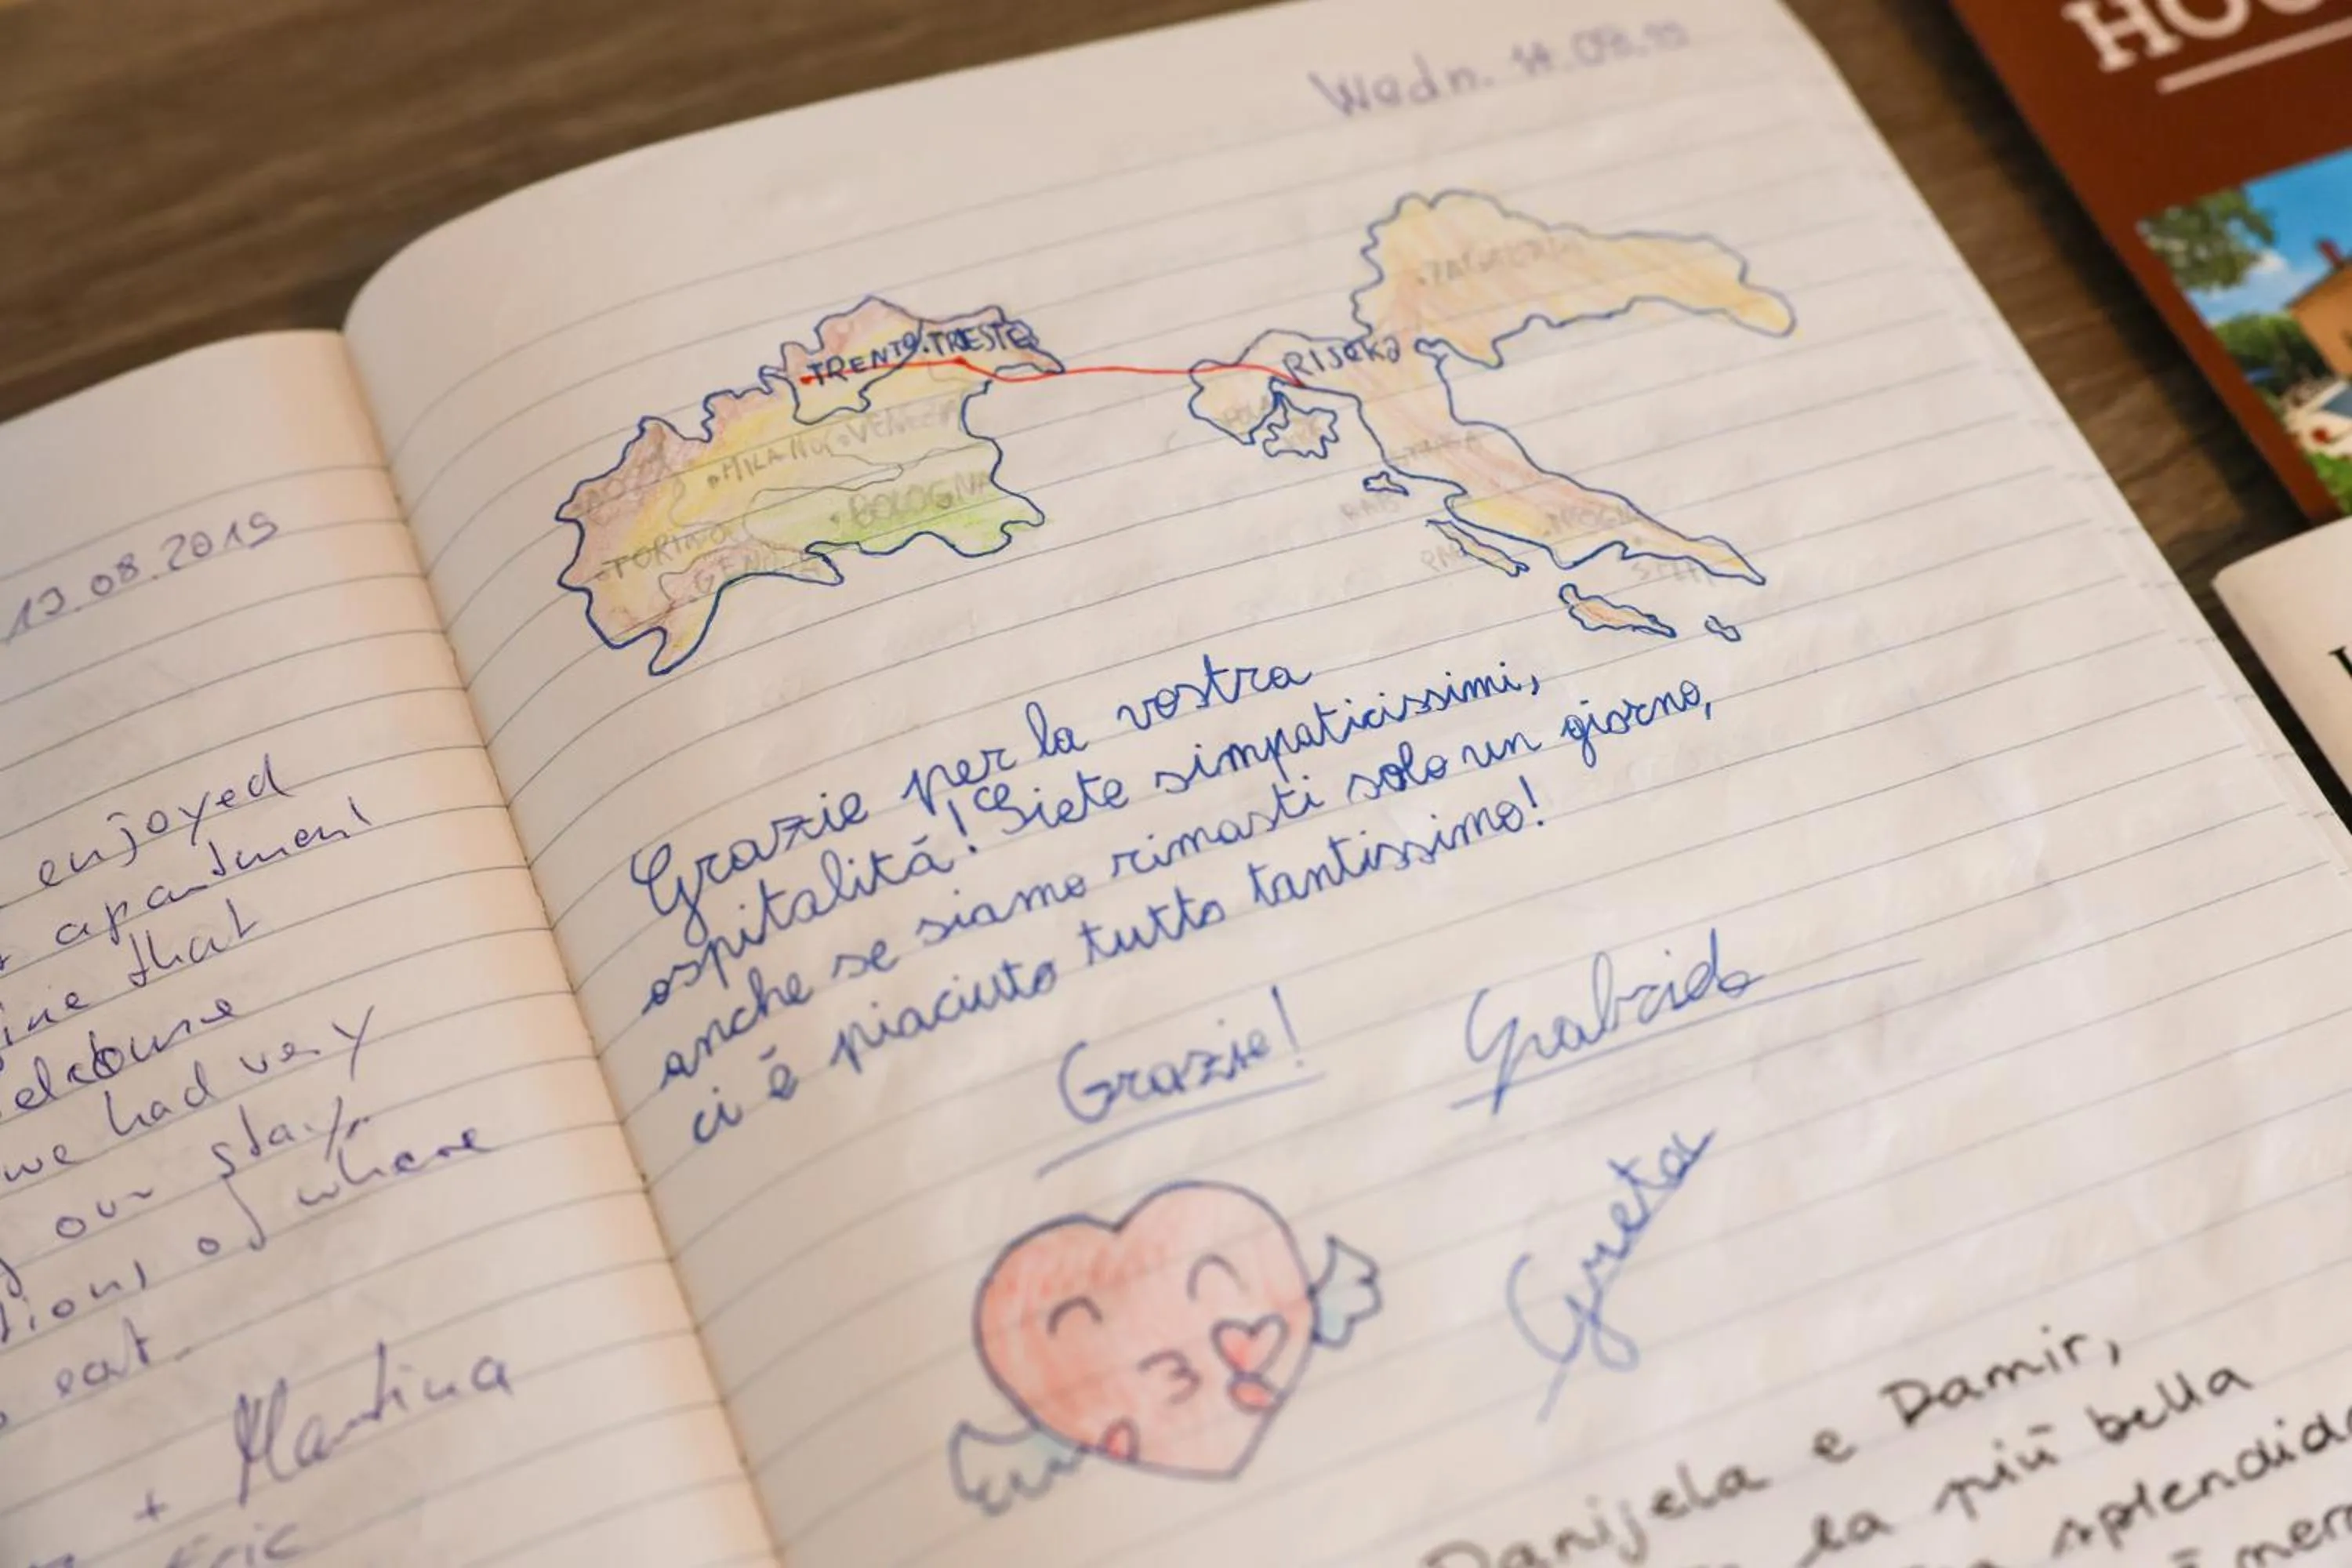 13.08.2019
enjoyed
apartment
that
we had very
our stay,
of where
eat.
+ Martina
Eric
Wedn. 14.08.19
TRENTO . TRIESTE
. MILANO . VENEZIA
. BOLOGNA
. TORINO
. GENOVA
RIJEKA
Grazie per la vostra
ospitalità! Siete simpaticissimi,
anche se siamo rimasti solo un giorno,
ci è piaciuto tutto tantissimo!
Grazie!
Greta
Danijela e Damir,
la più bella